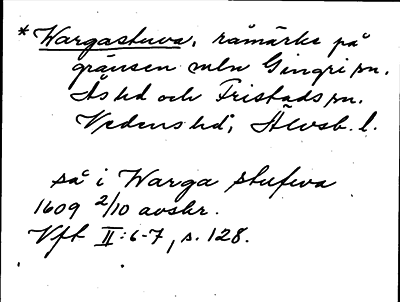 * Wargastuva, råmärke på
gränsen mln Gingri sn.
Ås hd och Fristads sn.
Vedens hd, Älvsb. l.
så i Warga stufwa
1609 2/10 avskr.
Vft II:6-7, s. 128.